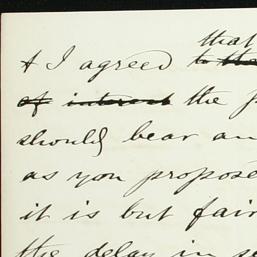 that
I agreed to the
of interest the
should bear an
as you propose
it is but fair
the delay in